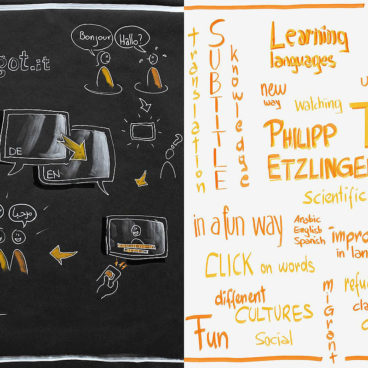 got.it
Bonjour
Hallo?
DE
EN
مرحبا
translation
SUBTITLE
knowledge
Learning
languages
new
way
watching
PHILIPP
ETZLINGER
Scientific
in a fun way
Arabic
English
Spanish
impro
in lan
CLICK on words
different
CULTURES
Fun
Social
migrant
refu
cla